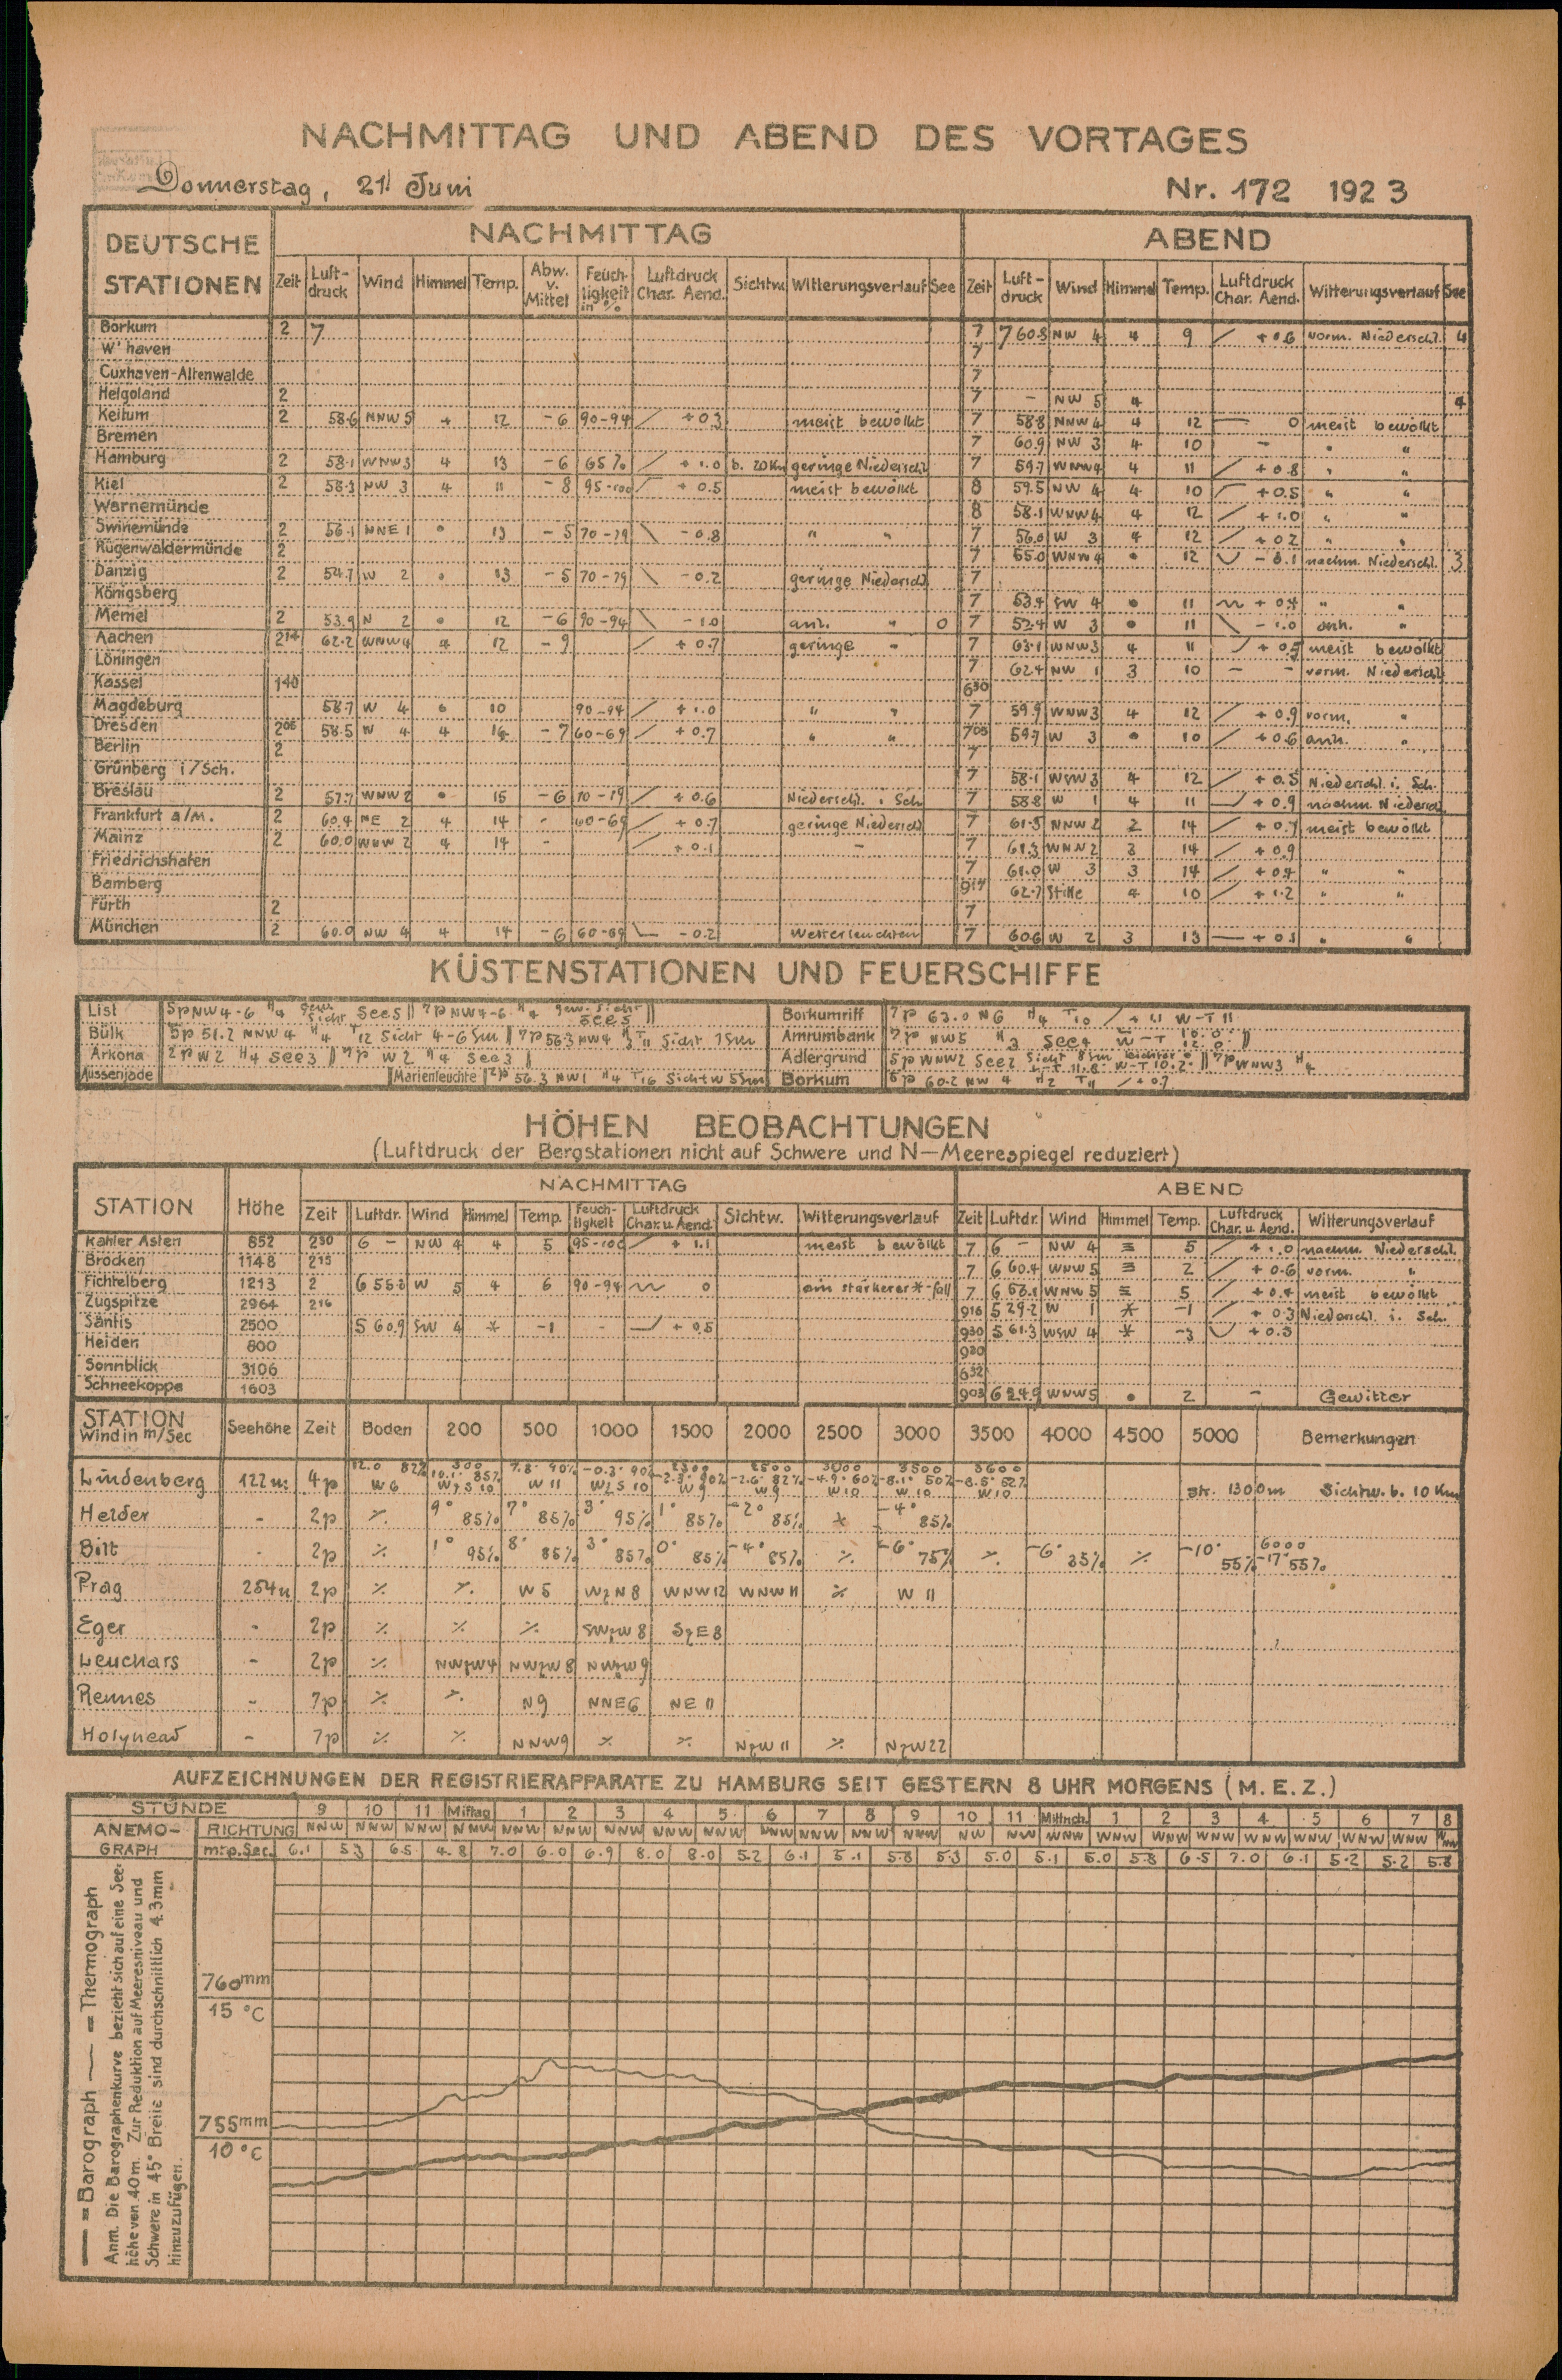 NACHMITTAG UND ABEND DES VORTAGES
Donnerstag, 21. Juni Nr. 172 1923
DEUTSCHE STATIONEN NACHMITTAG ABEND
Zeit Luft-druck Wind Himmel Temp. Abw. v. Mittel Feuch-ligkeit in % Luftdruck Char. Aend. Sichtw. Witterungsverlauf See Zeit Luft-druck Wind Himmel Temp. Luftdruck Char. Aend. Witterungsverlauf See
Borkum 2 7 7 760.8 NW 4 4 9 / +0.6 vorm. Niederschl. 4
W'haven 7
Cuxhaven-Altenwalde 7
Helgoland 2 7 - NW 5 4 4
Keitum 2 58.6 NNW 5 4 12 -6 90-94 / +0.3 meist bewölkt 7 58.8 NNW 4 4 12 — 0 meist bewölkt
Bremen 7 60.9 NW 3 4 10 - " "
Hamburg 2 58.1 WNW 3 4 13 -6 65% / +1.0 b. 20 Km geringe Niederschl. 7 59.7 WNW 4 4 11 / +0.8 " "
Kiel 2 58.3 NW 3 4 11 -8 95-100 +0.5 meist bewölkt 8 59.5 NW 4 4 10 +0.5 " "
Warnemünde 8 58.1 WNW 4 4 12 / +1.0 " "
Swinemünde 2 56.1 NNE 1 • 13 -5 70-79 \ -0.8 " " 7 56.0 W 3 4 12 / +0.2 " "
Rügenwaldermünde 2 7 55.0 WNW 4 • 12 -0.1 nachm. Niederschl. 3
Danzig 2 54.7 W 2 • 13 -5 70-79 \ -0.2 geringe Niederschl. 7
Königsberg 7 53.4 SW 4 • 11 +0.4 " "
Memel 2 53.9 N 2 • 12 -6 90-94 \ -1.0 anh. " 0 7 52.4 W 3 • 11 \ -1.0 anh. "
Aachen 2 14 62.2 WNW 4 4 12 -9 / +0.7 geringe " 7 63.1 WNW 3 4 11 +0.5 meist bewölkt
Löningen 7 62.4 NW 1 3 10 - - vorm. Niederschl.
Kassel 1 40 6 30
Magdeburg 58.7 W 4 • 10 90-94 / +1.0 " " 7 59.9 WNW 3 4 12 / +0.9 vorm. "
Dresden 2 06 58.5 W 4 4 14 -7 60-69 / +0.7 " " 7 05 59.7 W 3 • 10 / +0.6 anh. "
Berlin 2 7
Grünberg i/Sch. 7 58.1 WSW 3 4 12 / +0.5 Niederschl. i. Sch.
Breslau 2 57.7 WNW 2 • 15 -6 70-79 / +0.6 Niederschl. i. Sch. 7 58.8 W 1 4 11 +0.9 nachm. Niedersch.
Frankfurt a/M. 2 60.4 NE 2 4 14 - 60-69 / +0.7 geringe Niedersch. 7 61.5 NNW 2 2 14 / +0.7 meist bewölkt
Mainz 2 60.0 WNW 2 4 14 - / +0.1 - 7 61.3 WNW 2 3 14 / +0.9
Friedrichshafen 7 61.0 W 3 3 14 / +0.4 " "
Bamberg 8 14 62.7 Stille 4 10 / +1.2 " "
Fürth 2 7
München 2 60.0 NW 4 4 14 -6 60-69 -0.2 Wetterleuchten 7 60.6 W 2 3 13 +0.1 " "
KÜSTENSTATIONEN UND FEUERSCHIFFE
List 5p NW 4-6 H4 gew. Sicht See 5 || 7p NW 4-6 H4 gew. Sicht See 5 ||
Borkumriff 7p 63.0 N 6 H4 T10 / +1.1 W-T 11
Bülk 5p 51.2 NNW 4 H4 T12 Sicht 4-6 Sm || 7p 56.3 NW 4 H3 T11 Sicht 7 Sm
Amrumbank 7p NW 5 H3 See 4 W-T 12.0° ||
Arkona 2p W 2 H4 See 3 || 7p W 2 H4 See 3 |
Adlergrund 5p WNW 2 See 2 Sicht 8 Sm W-T 10.2° || 7p WNW 3 H4
Aussenjade Marienleuchte 2p 56.3 NW 1 H4 T16 Sichtw 5 Sm
Borkum 5p 60.2 NW 4 H2 T11 / +0.7
HÖHEN BEOBACHTUNGEN
(Luftdruck der Bergstationen nicht auf Schwere und N-Meerespiegel reduziert)
STATION Höhe NACHMITTAG ABEND
Zeit Luftdr. Wind Himmel Temp. Feuch-tigkeit Luftdruck Char. u. Aend. Sichtw. Witterungsverlauf Zeit Luftdr. Wind Himmel Temp. Luftdruck Char. u. Aend. Witterungsverlauf
Kahler Asten 852 2 30 6 - NW 4 4 5 95-100 / +1.1 meist bewölkt 7 6 - NW 4 ≡ 5 / +1.0 nachm. Niederschl.
Brocken 1148 2 15 7 6 60.4 WNW 5 ≡ 2 / +0.6 vorm. "
Fichtelberg 1213 2 6 55.8 W 5 4 6 90-94 0 ein starkerer *-fall 7 6 58.1 WNW 5 ≡ 5 / +0.4 meist bewölkt
Zugspitze 2964 2 16 9 16 5 29.2 W 1 * -1 / +0.3 Niederschl. i. Sch.
Säntis 2500 5 60.9 SW 4 * -1 - +0.5 9 30 5 61.3 WSW 4 * -3 +0.5
Heiden 800 9 20
Sonnblick 3106 6 32
Schneekoppe 1603 9 03 6 24.9 WNW 5 • 2 - Gewitter
STATION Wind in m/Sec Seehöhe Zeit Boden 200 500 1000 1500 2000 2500 3000 3500 4000 4500 5000 Bemerkungen
Lindenberg 122 m 4p 12.0 82% W 6 300 10.1° 85% WzS 10 7.8° 90% W 11 -0.3° 90% WzS 10 -2.3° 90% W 9 2500 -2.6° 82% W 9 3000 -4.9° 60% W 10 3500 -8.1° 50% W 10 3600 -8.5° 52% W 10 Str. 1300 m Sichtw. b. 10 Km
Helder - 2p % 9° 85% 7° 85% 3° 95% 1° 85% -2° 85% * -4° 85%
Bilt - 2p % 1° 95% 8° 85% 3° 85% 0° 85% -4° 85% % -6° 75% % -6° 35% % -10° 55% 6000 -17° 55%
Prag 254 m 2p % % W 5 WzN 8 WNW 12 WNW 11 % W 11
Eger - 2p % % % SWzW 8 SzE 8
Leuchars - 2p % NWzW 4 NWzW 8 NWzW 9
Rennes - 7p % % N 9 NNE 6 NE 11
Holyhead - 7p % % NNW 9 % % NzW 11 % NzW 22
AUFZEICHNUNGEN DER REGISTRIERAPPARATE ZU HAMBURG SEIT GESTERN 8 UHR MORGENS (M.E.Z.)
STUNDE 9 10 11 Mittag 1 2 3 4 5 6 7 8 9 10 11 Mittnch. 1 2 3 4 5 6 7 8
ANEMO-GRAPH RICHTUNG NNW NNW NNW NNW NNW NNW NNW NNW NNW NNW NNW NNW NNW NW NW WNW WNW WNW WNW WNW WNW WNW WNW WNW
m. p. Sec. 6.1 5.3 6.5 4.8 7.0 6.0 6.9 8.0 8.0 5.2 6.1 5.1 5.8 5.3 5.0 5.1 5.0 5.8 6.5 7.0 6.1 5.2 5.2 5.8
— = Barograph — = Thermograph
Anm. Die Barographenkurve bezieht sich auf eine See-
höhe von 40 m. Zur Reduktion auf Meeresniveau und
Schwere in 45° Breite sind durchschnittlich 4.3 mm
hinzuzufügen.
760 mm
15 °C
755 mm
10 °C